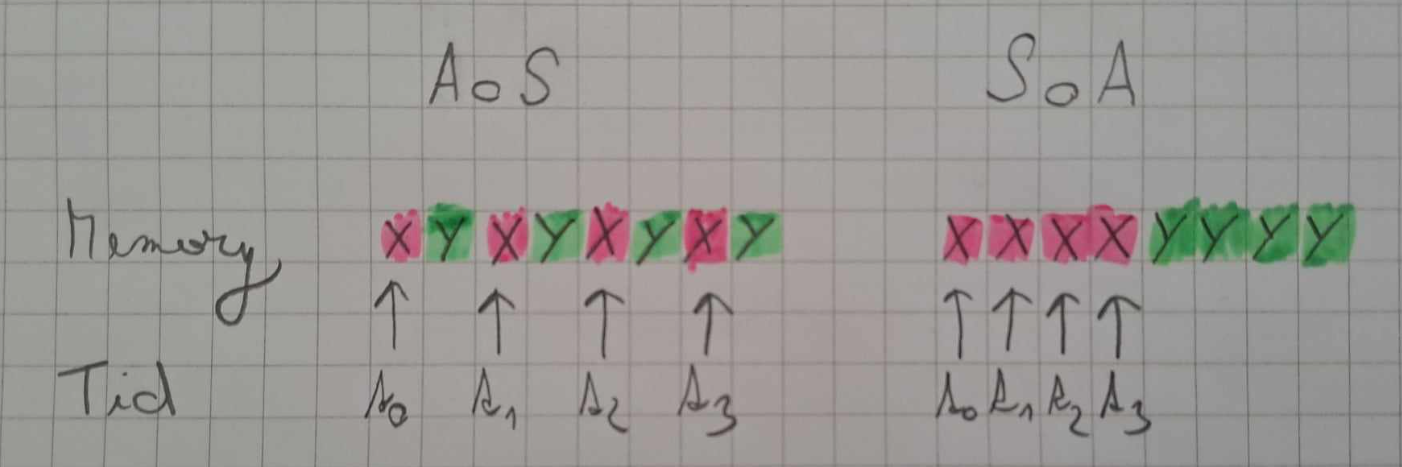 AoS SoA
Memory X Y X Y X Y X Y X X X X Y Y Y Y
Tid t₀ t₁ t₂ t₃ t₀ t₁ t₂ t₃